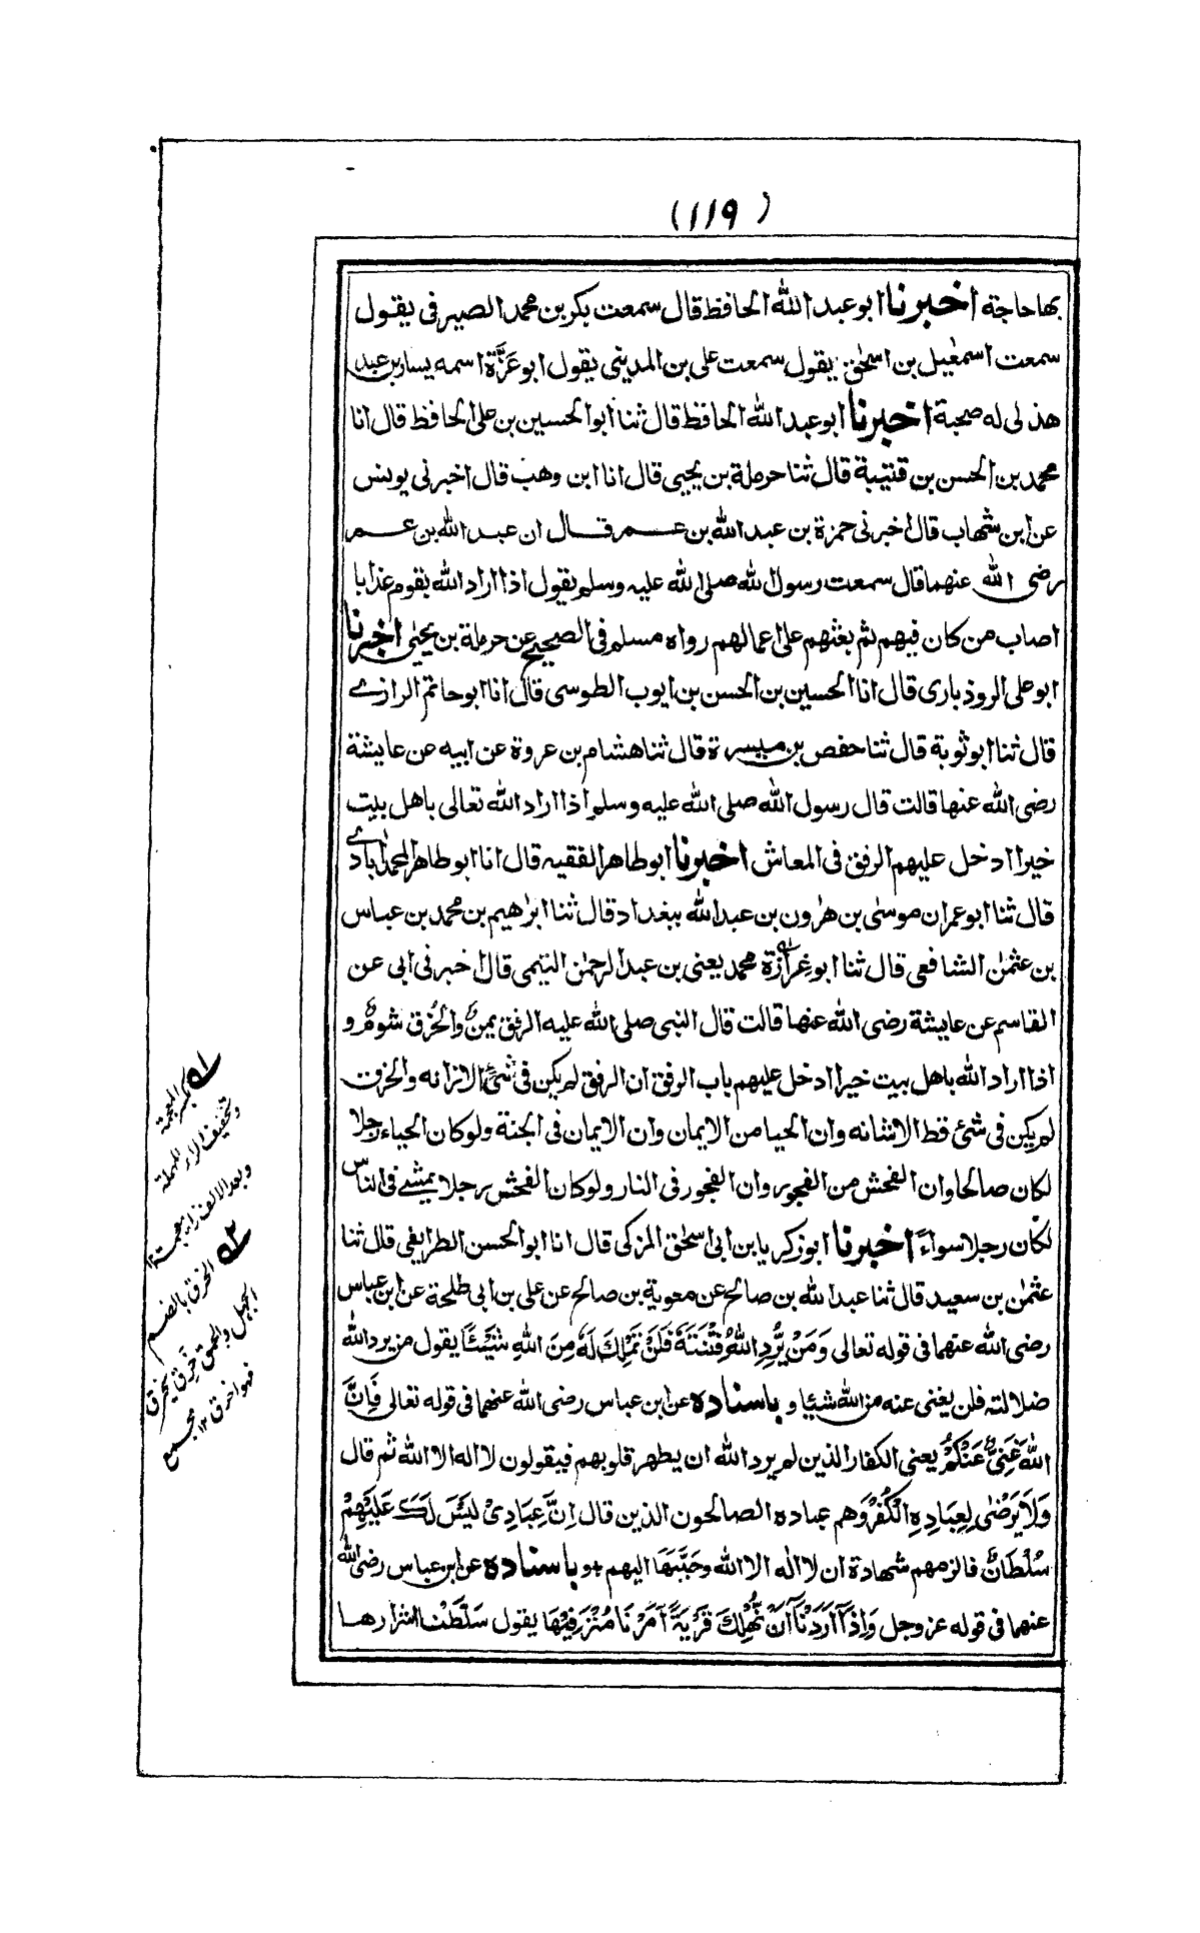 (١١٩)
بها حاجة اخبرنا ابو عبد الله الحافظ قال سمعت بكر بن محمد الصيرفى يقول
سمعت اسمعيل بن اسحٰق يقول سمعت على بن المدينى يقول ابو عزَّة اسمه يسار بن عبد
هذلى له صحبة اخبرنا ابو عبد الله الحافظ قال ثنا ابو الحسين بن على الحافظ قال انا
محمد بن الحسن بن قتيبة قال ثنا حرملة بن يحيى قال انا ابن وهب قال اخبرنى يونس
عن ابن شهاب قال اخبرنى حمزة بن عبد الله بن عمر قال ان عبد الله بن عمر
رضى الله عنهما قال سمعت رسول الله صلى الله عليه وسلم يقول اذا اراد الله بقوم عذابا
اصاب من كان فيهم ثم بعثهم على اعمالهم رواه مسلم فى الصحيح عن حرملة بن يحيٰى اخبرنا
ابو على الروذبارى قال انا الحسين بن الحسن بن ايوب الطوسى قال انا ابو حاتم الرازے
قال ثنا ابو ثوبة قال ثنا حفص بن ميسرة قال ثنا هشام بن عروة عن ابيه عن عايشة
رضى الله عنها قالت قال رسول الله صلى الله عليه وسلم اذا اراد الله تعالى باهل بيت
خيرا ادخل عليهم الرفق فى المعاش اخبرنا ابو طاهر الفقيه قال انا ابو طاهر المحمدٰاباذے
قال ثنا ابو عمران موسٰى بن هٰرون بن عبد الله ببغداد قال ثنا ابرٰهيم بن محمد بن عباس
بن عثمٰن الشافعى قال ثنا ابو غِرازة محمد يعنى بن عبد الرحمٰن التيمى قال اخبرنى ابى عن
القاسم عن عايشة رضى الله عنها قالت قال النبى صلى الله عليه الرفق يمنٌ والخُرق شومٌ و
اذا اراد الله باهل بيت خيرا ادخل عليهم باب الرفق ان الرفق لم يكن فى شئ الا زانه والخرق
لم يكن فى شئ قط الا شانه وان الحيا من الايمان وان الايمان فى الجنة ولو كان الحياء رجلا
لكان صالحا وان الفحش من الفجور وان الفجور فى النار ولو كان الفحش رجلا يمشے فى الناس
لكان رجلا سواءً اخبرنا ابو زكريا بن ابى اسحٰق المزكى قال انا ابو الحسن الطرايفى قال ثنا
عثمٰن بن سعيد قال ثنا عبد الله بن صالح عن معوية بن صالح عن على بن ابى طلحة عن ابن عباس
رضى الله عنهما فى قوله تعالى وَمَنْ يُّرِدِ اللّٰهُ فِتْنَتَهٗ فَلَنْ تَمْلِكَ لَهٗ مِنَ اللّٰهِ شَيْئًا يقول من يرد الله
ضلالته فلن يغنى عنه من الله شيئا وباسناده عن ابن عباس رضى الله عنهما فى قوله تعالى فَاِنَّ
اللّٰهَ غَنِىٌّ عَنْكُمْ يعنى الكفار الذين لم يرد الله ان يطهر قلوبهم فيقولون لا اله الا الله ثم قال
وَلَا يَرْضٰى لِعِبَادِهِ الْكُفْرَ وهم عباده الصالحون الذين قال اِنَّ عِبَادِىْ لَيْسَ لَكَ عَلَيْهِمْ
سُلْطَانٌ فالزمهم شهادة ان لا اله الا الله وحَبَّبَهَا اليهم وباسناده عن ابن عباس رضى الله
عنهما فى قوله عز وجل وَاِذَآ اَرَدْنَآ اَنْ نُّهْلِكَ قَرْيَةً اَمَرْنَا مُتْرَفِيْهَا يقول سَلَّطْنا اشرارها
١ بكسر المعجمة
وتخفيف الراء المهملة
وبعد الالف زاى معجمة ١٢
٢ الخرق بالضم
الجهل والحمق خرق يخرق
فهو اخرق ١٢ مجمع